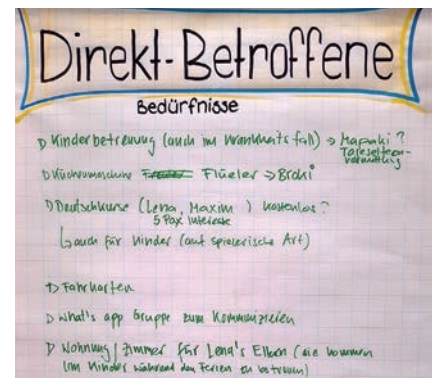 Direkt-Betroffene
Bedürfnisse
▷ Kinderbetreuung (auch im Krankheitsfall) → Mapaki?
Tageseltern-
vermittlung
▷ Küchenmaschine Flüeler → Brocki
▷ Deutschkurse (Lena, Maxim) kostenlos?
5 Pax Interesse
↳ auch für Kinder (auf spielerische Art)
▷ Fahrkarten
▷ What's app Gruppe zum Kommunizieren
▷ Wohnung / Zimmer für Lena's Eltern (sie kommen
um Kinder während den Ferien zu betreuen)